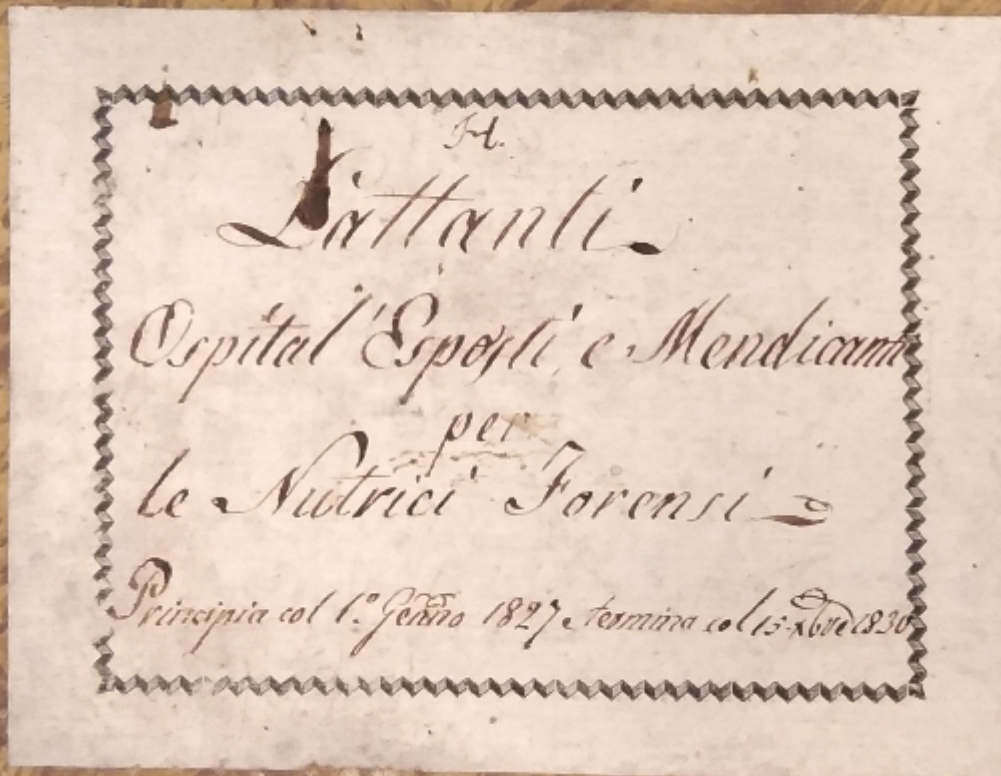 H.
Lattanti
Ospital' Esposti, e Mendicanti
per
le Nutrici Forensi
Principia col 1.º Genno 1827, termina col 15 Xbre 1830